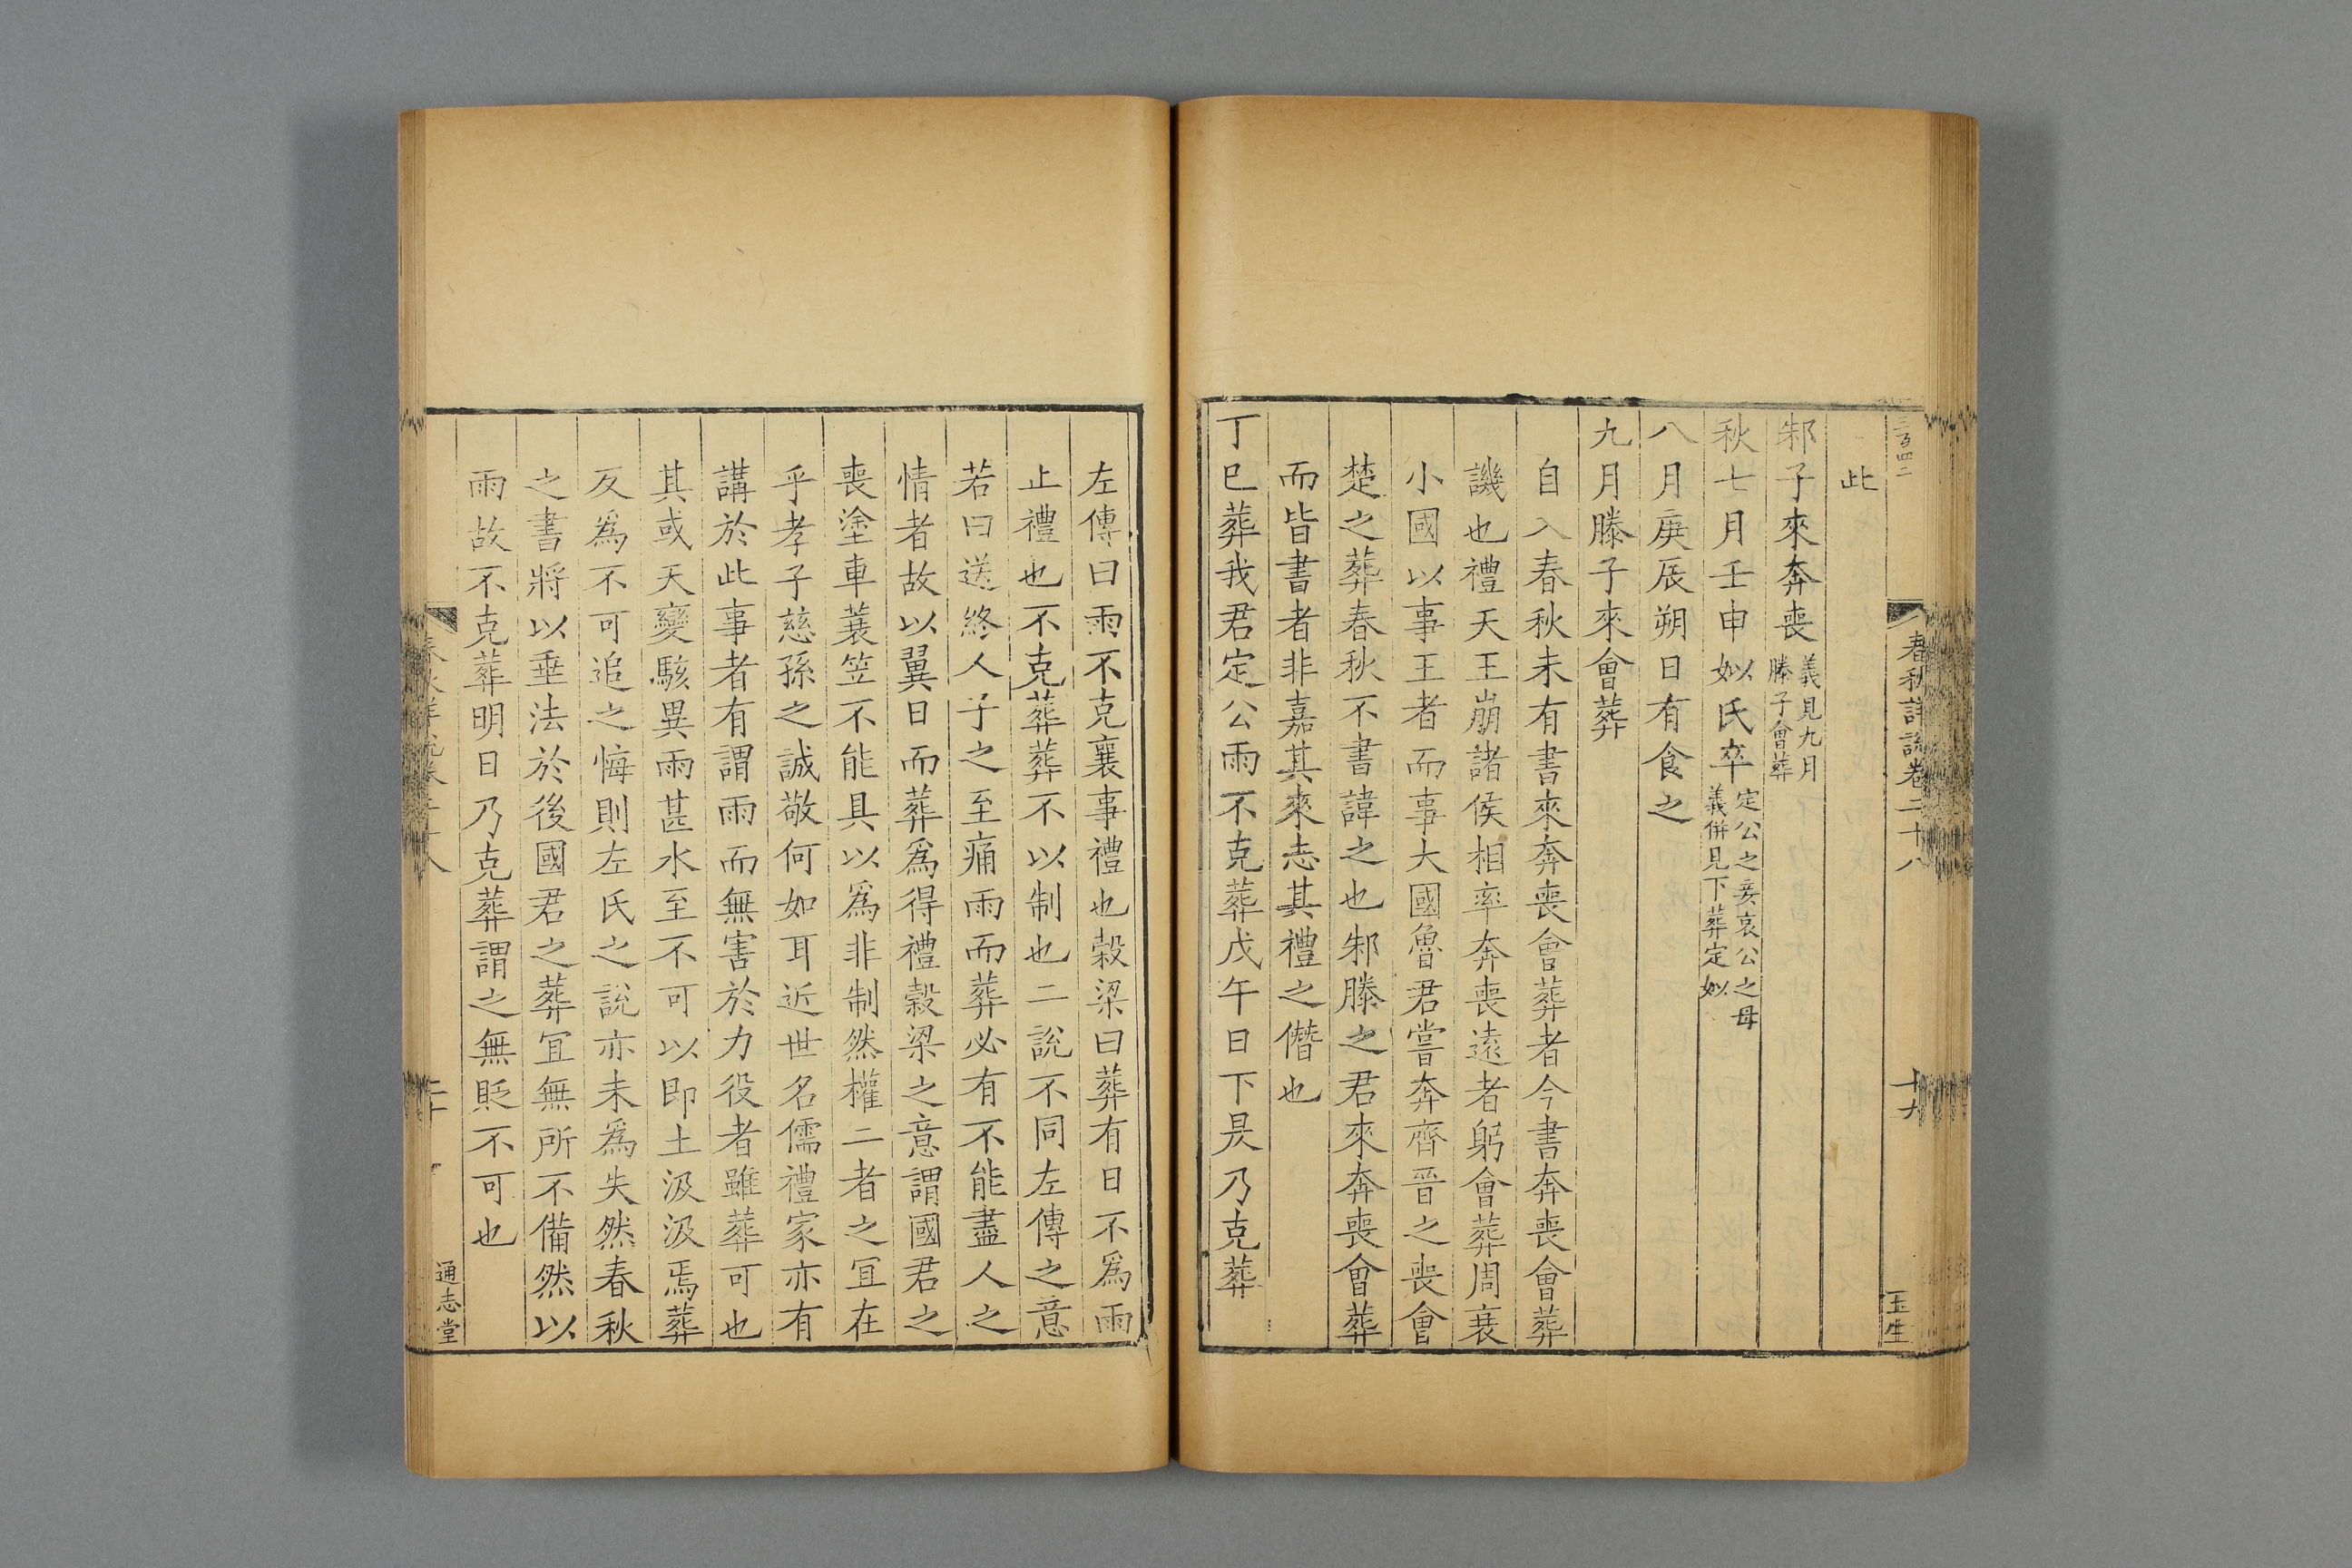 三百四二
春秋詳說卷二十八
十九
玉生
此
邾子來奔喪義見九月滕子會葬
秋七月壬申姒氏卒定公之妾哀公之母義併見下葬定姒
八月庚辰朔日有食之
九月滕子來會葬
自入春秋未有書來奔喪會葬者今書奔喪會葬
譏也禮天王崩諸侯相率奔喪遠者躬會葬周衰
小國以事王者而事大國魯君嘗奔齊晉之喪會
楚之葬春秋不書諱之也邾滕之君來奔喪會葬
而皆書者非嘉其來志其禮之僭也
丁巳葬我君定公雨不克葬戊午日下昃乃克葬
左傳曰雨不克襄事禮也穀梁曰葬有日不爲雨
止禮也不克葬葬不以制也二說不同左傳之意
若曰送終人子之至痛雨而葬必有不能盡人之
情者故以翼日而葬爲得禮穀梁之意謂國君之
喪塗車蓑笠不能具以爲非制然權二者之宜在
乎孝子慈孫之誠敬何如耳近世名儒禮家亦有
講於此事者有謂雨而無害於力役者雖葬可也
其或天變駭異雨甚水至不可以即土汲汲焉葬
反爲不可追之悔則左氏之說亦未爲失然春秋
之書將以垂法於後國君之葬宜無所不備然以
雨故不克葬明日乃克葬謂之無貶不可也
春秋詳說卷二十八
二十
通志堂